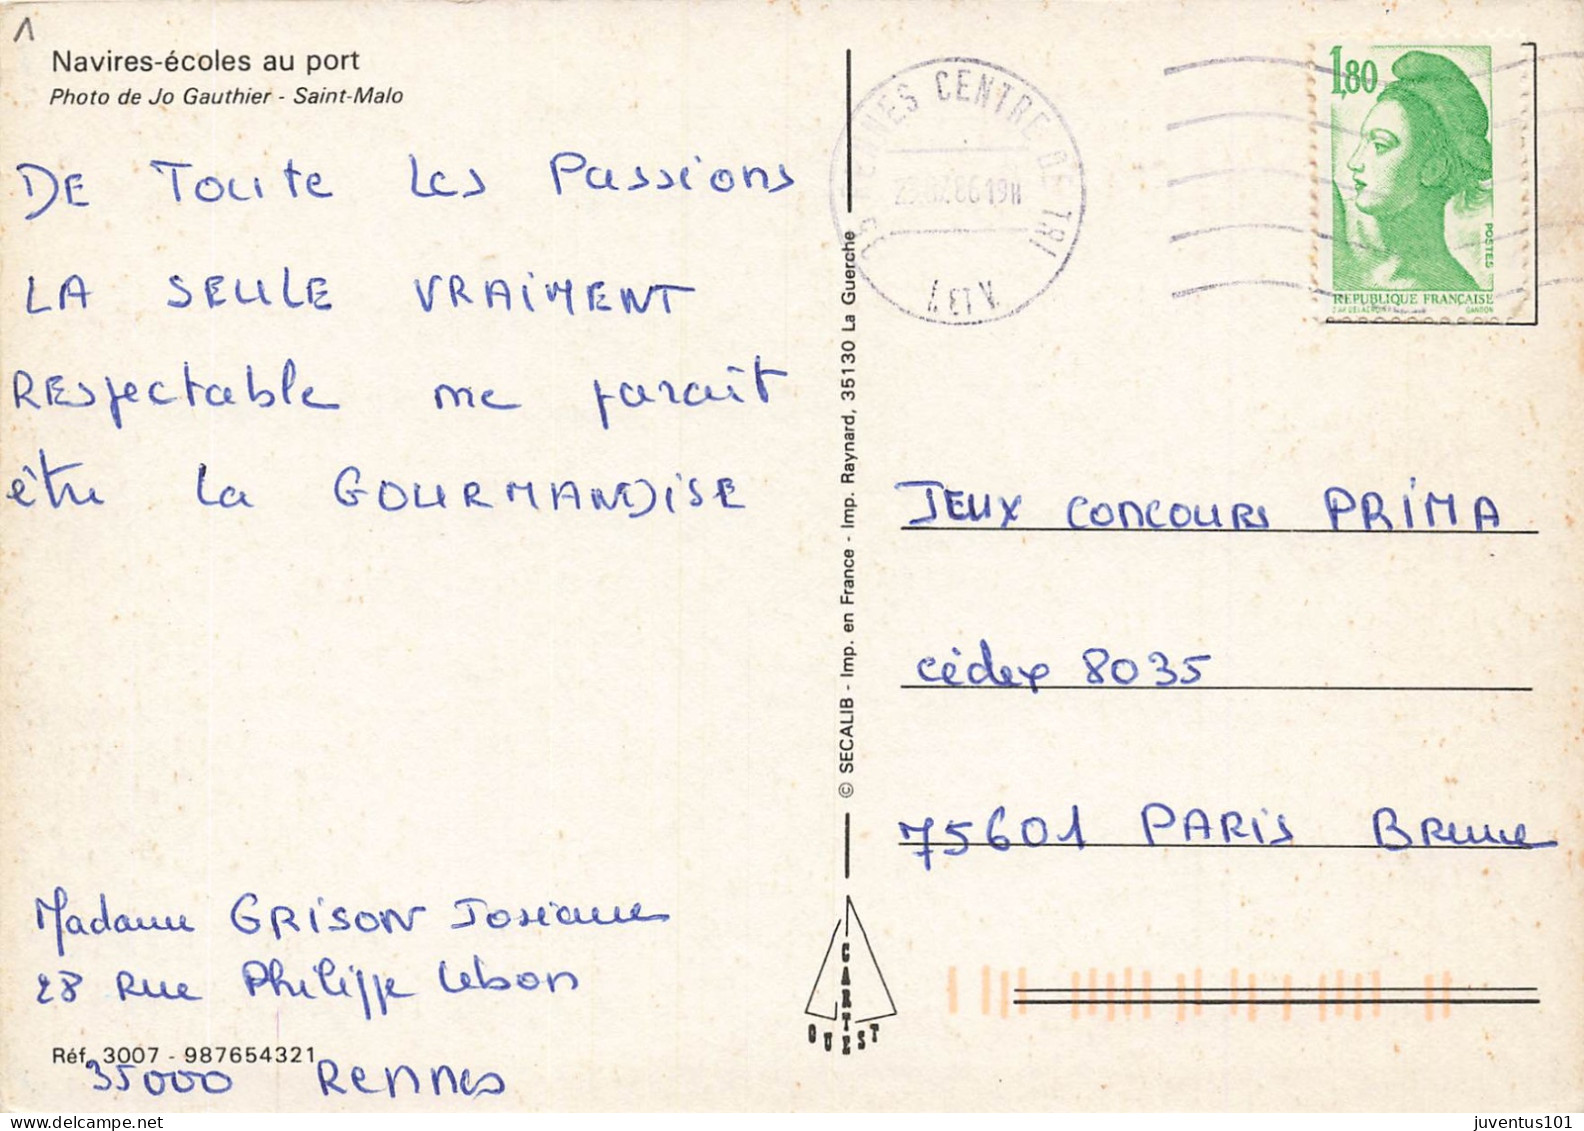 1
Navires-écoles au port
Photo de Jo Gauthier - Saint-Malo
DE Toute les Passions
LA SEULE VRAIMENT
RESpectable me paraît
être la GOURMANDiSE
Madame GRiSON Josiane
28 Rue Philippe Lebon
Réf. 3007 - 987654321
35000 Rennes
© SECALIB - Imp. en France - Imp. Raynard, 35130 La Guerche
CARTES
OUEST
35 RENNES CENTRE DE TRI
86 19H
1,80
POSTES
REPUBLIQUE FRANÇAISE
D'AP. DELACROIX GANDON
JEUX CONCOURS PRiMA
Cédex 8035
75601 PARiS Brune
juventus101